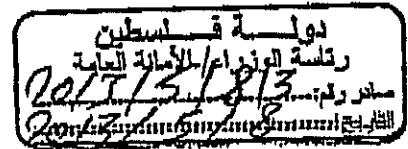 دولــة فــلسطين
رئاسة الوزراء/الأمانة العامة
صادر رقم: 2013/5/813
التاريخ: 2013/5/8